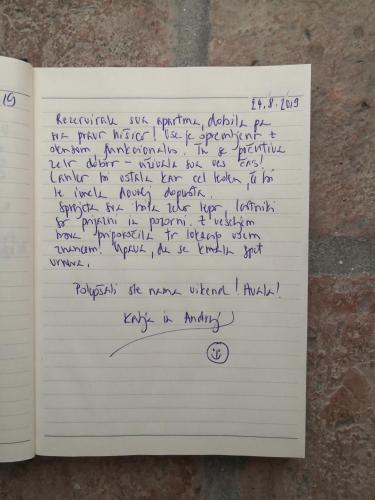 19
24.8.2019
Rezervirala sva apartma, dobila pa
sva pravo hišico! Vse je opremljeno z
okusom funkcionalno. Tu se počutiva
zelo dobro – uživala sva ves čas!
Lahko bi ostala kar cel teden, če bi
le imela dovolj dopusta.
Sprejeta sva bila zelo lepo, lastniki
so prijazni in pozorni. Z veseljem
bova priporočila to lokacijo vsem
znancem! Upava, da se kmalu spet
vrneva.
Polepšali ste nama vikend! Hvala!
Katja in Andrej